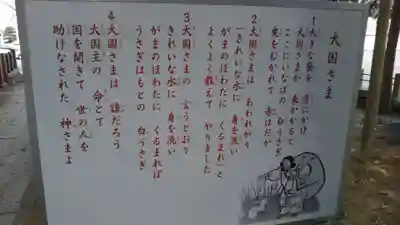 大国さま
1 大きな袋を 肩にかけ
大国さまが 来かかると
ここにいなばの 白うさぎ
皮をむかれて 赤はだか
2 大国さまは あわれがり
きれいな水に 身を洗い
がまのほわたに くるまれと
よくよく教えて やりました
3 大国さまの 言うとおり
きれいな水に 身を洗い
がまのほわたに くるまれば
うさぎはもとの 白うさぎ
4 大国さまは 誰だろう
大国主の 命とて
国を開きて 世の人を
助けなされた 神さまよ